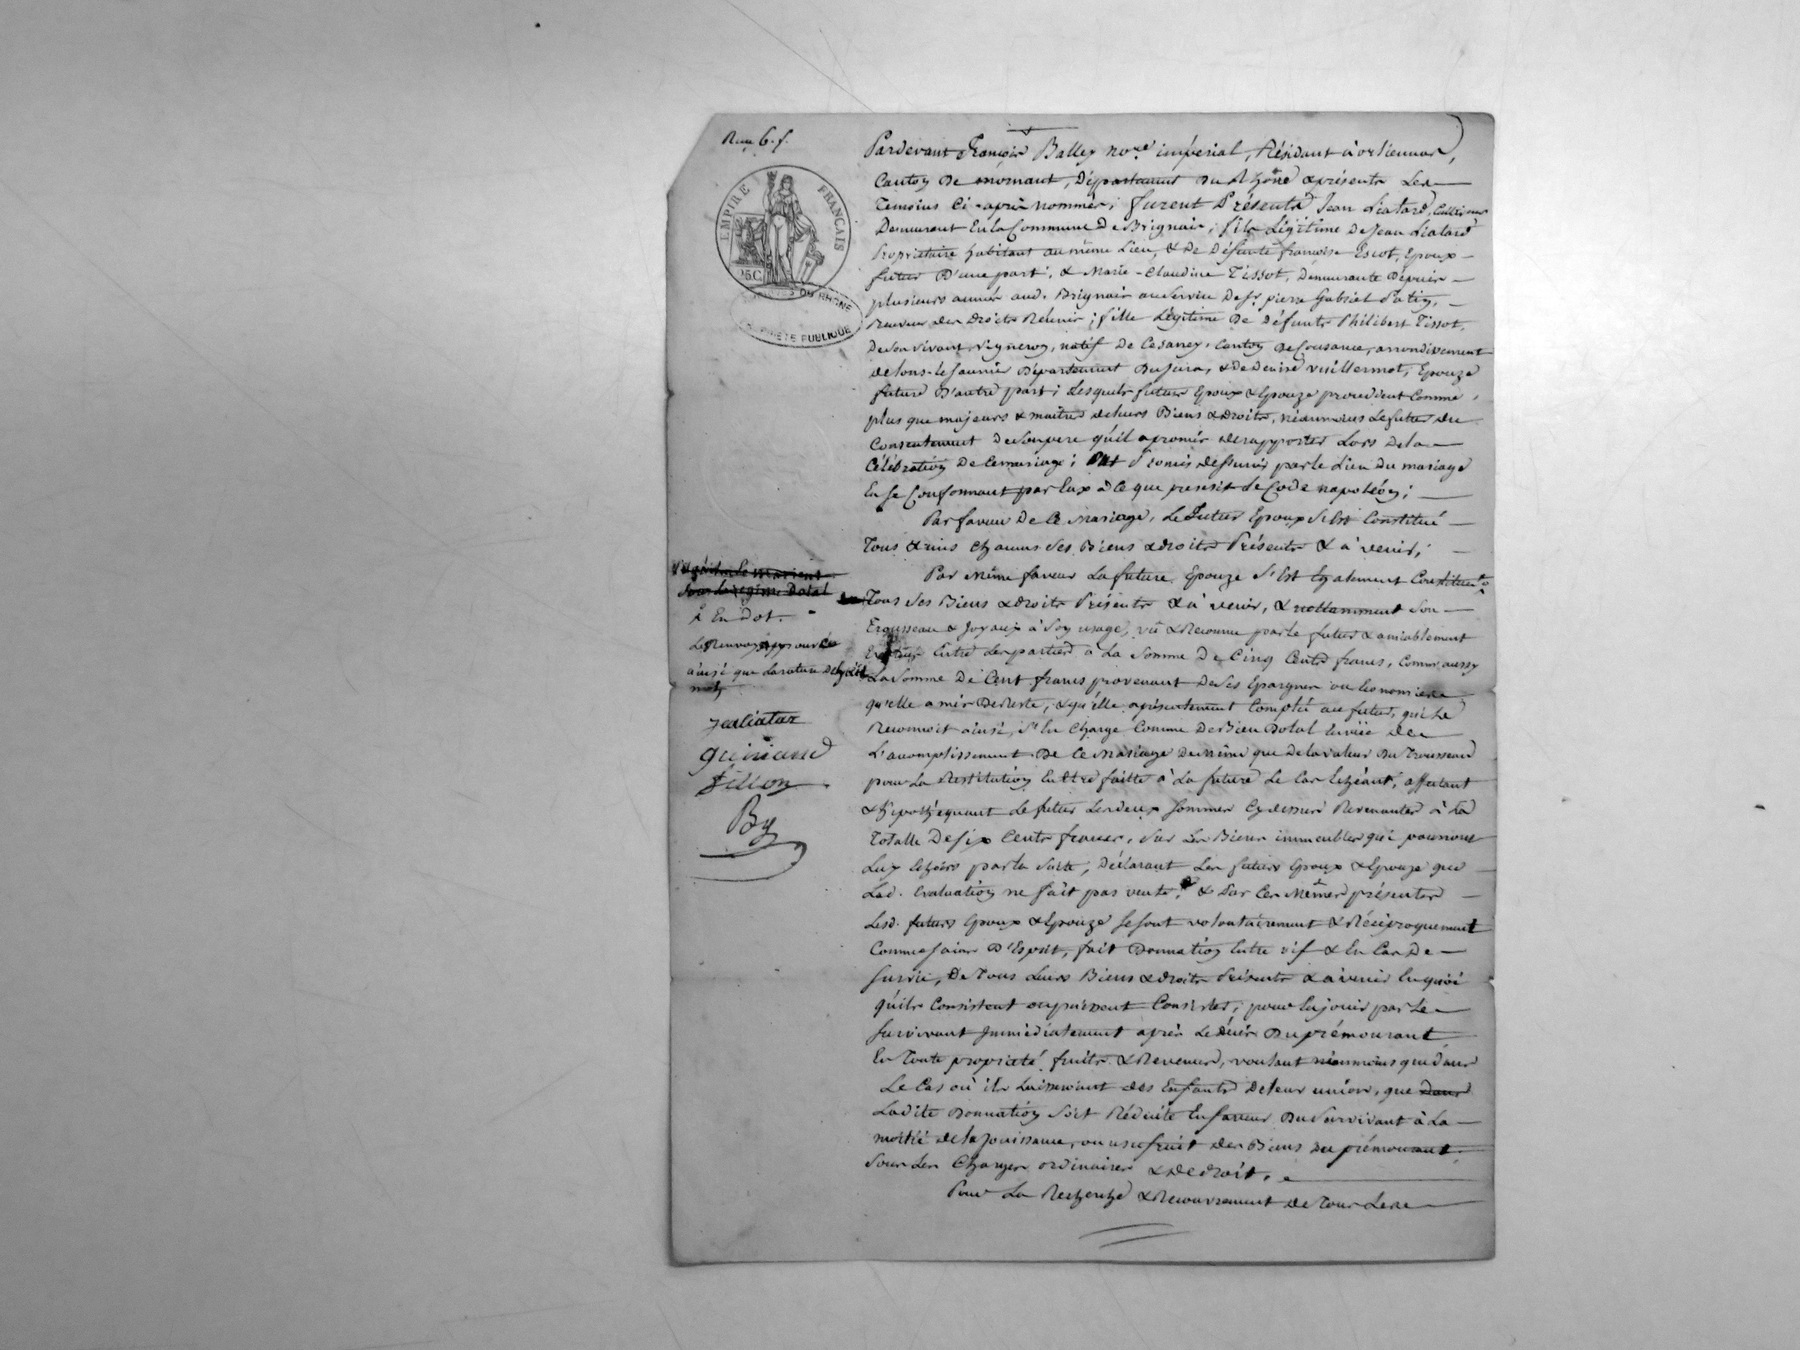 6. f.
EMPIRE FRANÇAIS
DU RHONE
PUBLIQUE
Pardevant françois Balley nore impérial, Résidant à orliennas,
Canton De mornant, Département Du Rhône & présents Les
Temoins Ci-après nommés; furent Présents Jean Liatard, Cultivateur
Demeurant En la Commune De Brignais, fils Légitime De Jean Liatard
Propriétaire habitant au même Lieu, & De Défunte françoise Escot, Epoux
futur D'une part; & Marie-Claudine Tissot, Demeurante Depuis
plusieurs années aud. Brignais au Service De Sr. pierre Gabriel Patin,
Receveur des Droits Réunis; fille Légitime De Défunts Philibert Tissot,
De son vivant vigneron, natif De Cesancy, Canton De Cousance, arrondissement
de lons-le-Saunier Département Du Jura, & De Denise vuillermot, Epouze
future D'autre part; Lesquels futurs Epoux & Epouze procedient Comme
plus que majeurs & maîtres de leurs Biens & droits, néanmoins Le futur Du
Consentement De Son pere qu'il a promis de rapporter Lors De la
Célébration De Ce mariage; promis de s'unir par le Lien Du mariage
En se Conformant par Eux à Ce que prescrit Le Code napoléon;
Par faveur De Ce Mariage, Le futur Epoux S'Est Constitué
Tous & uns Chacuns Ses Biens & droits Présents & à venir;
Par Même faveur La future Epouze S'Est Egalement Constituée
Tous Ses Biens & droits Présents & à venir, & nottamment Son
Trousseau & Joyaux à Son usage, vû & Reconnu par le futur & amiablement
Entre Les parties à La Somme De Cinq Cents francs, Comme aussy
La Somme De Cent francs provenant De Ses Epargnes
qu'elle a mis De Reste, & qu'elle a présentement Compté au futur, qui Le
Reconnoit ainsi, S'En Charge Comme De Bien Dotal
L'accomplissement De Ce Mariage De même que De la valeur Du Trousseau
pour La Restitution En Etre faitte à La future Le Cas Echéant, affectant
& hipothéquant Le futur Les deux Sommes Cy dessus Revenantes à la
Totalle De Six Cents francs, Sur Les Biens immeubles qui pourront
Luy Echoirs par la Suite; Déclarant Les futurs Epoux & Epouze que
Lad. évaluation ne fait pas vente; & Par Ces Mêmes présentes
Lesd. futurs Epoux & Epouze se sont volontairement & Réciproquement
Comme Sains D'Esprit, fait Donnation Entre vif & En Cas De
Survie, De Tous Leurs Biens & droits Présents & à venir En quoi
qu'ils Consistent ou puissent Consister; pour En jouir par Le
Survivant Immédiatement après Le Décès Du prémourant
En Toute propriété, fruits & Revenus, voulant néanmoins que Dans
Le Cas où ils Laisseroient des Enfants De leur union, que Dans
Ladite Donnation Soit Réduite En faveur Du Survivant à La
moitié de la Jouissance, ou usufruit des Biens du prémourant,
Sous Les Charges ordinaires & De droit.
Pour La Recherche & Recouvrement De Tous Les
Sous Le régime Dotal
En Dot.
Le Renvoy approuvé
ainsi que La rature
mots
jealiatar
guinand
fillion
By